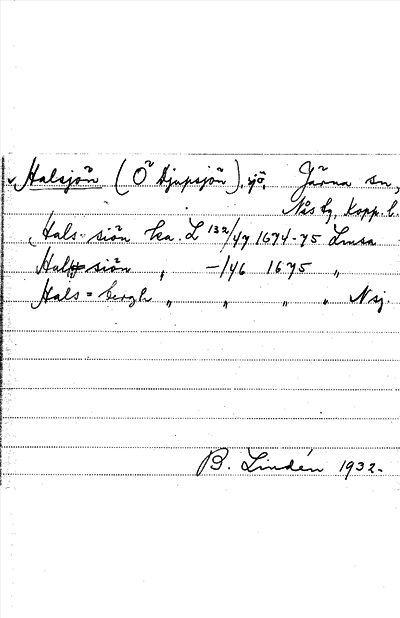 Halsjön (Ö Djupsjön), sjö, Järna sn,
Nås tg, Kopp. l.
Hals-siön ka. L 132/47 1674-75 Lmsa
siön " -/46 1675 "
Hals=bergh " " " " Nsj.
B. Lindén 1932.